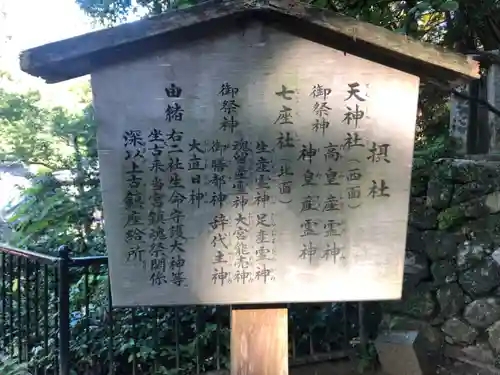 摂社
天神社(西面)
御祭神 高皇産霊神
神皇産霊神
七座社(北面)
御祭神 生産霊神 足産霊神
魂留産霊神 大宮能売神
御膳都神 辞代主神
大直日神
由緒 右二社生命守護大神等
坐当宮鎮魂祭関係
深以上古鎮座給所